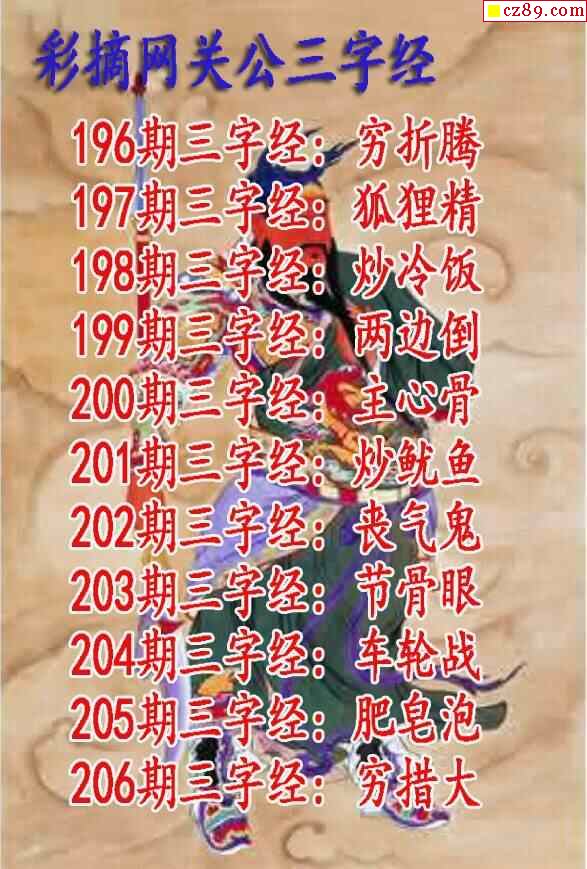 cz89.com
彩摘网关公三字经
196期三字经：穷折腾
197期三字经：狐狸精
198期三字经：炒冷饭
199期三字经：两边倒
200期三字经：主心骨
201期三字经：炒鱿鱼
202期三字经：丧气鬼
203期三字经：节骨眼
204期三字经：车轮战
205期三字经：肥皂泡
206期三字经：穷措大